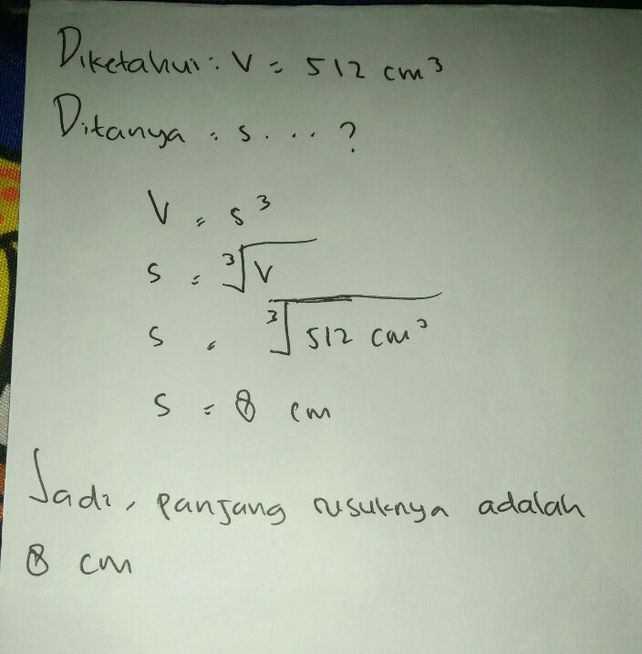 Diketahui: V = 512 cm³
Ditanya : s. ... ?
V = s³
s = ³√V
s = ³√512 cm³
s = 8 cm
Jadi, panjang rusuknya adalah
8 cm